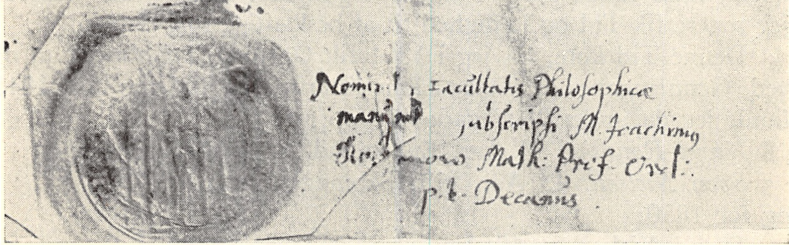 Nomine Facultatis Philosophicæ
manu subscripsi M. Joachimus
Math: Prof. Ord:.
p. t. Decanus.